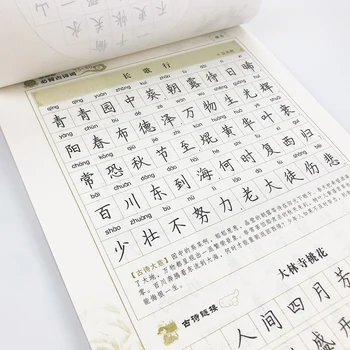 必背古诗词
长歌行
qīng qīng yuán zhōng kuí zhāo lù dài rì xī
青青园中葵朝露待日晞
yáng chūn bù dé zé wàn wù shēng guāng huī
阳春布德泽万物生光辉
cháng kǒng qiū jié zhì kūn huáng huā yè shuāi
常恐秋节至焜黄华叶衰
bǎi chuān dōng dào hǎi hé shí fù xī guī
百川东到海何时复西归
shào zhuàng bù nǔ lì lǎo dà tú shāng bēi
少壮不努力老大徒伤悲
【古诗大意】园中的葵菜啊，郁郁葱葱，晶莹的朝露
百川奔腾着东流到大海，何时才能重新返回西境？
能悔恨一生。
古诗链接
大林寺桃花
人间四月芳
盛开